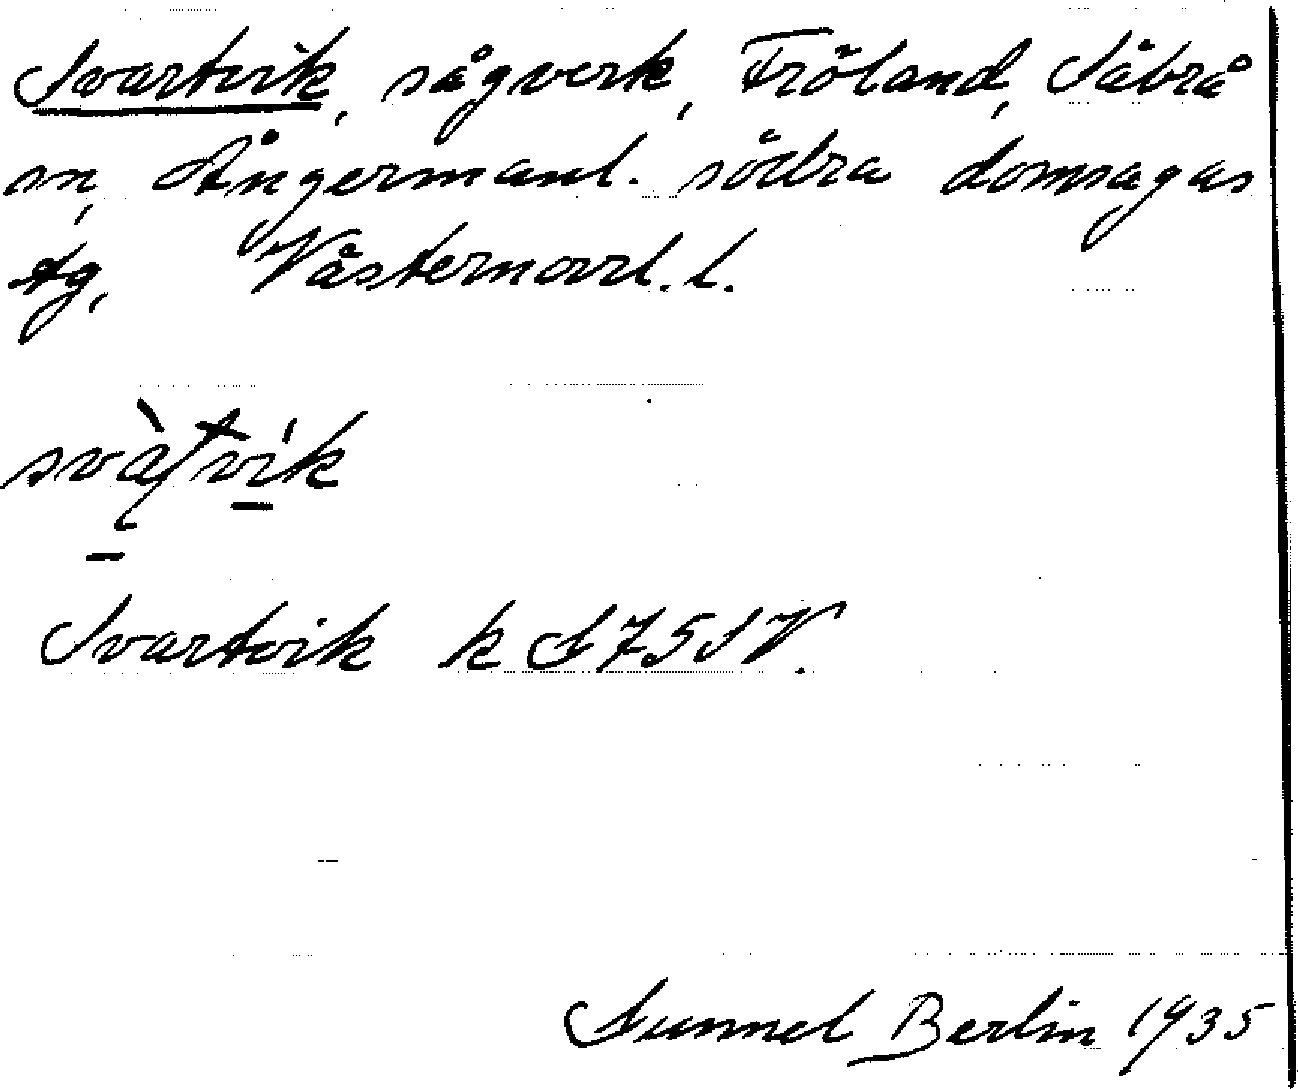 Svartvik, sågverk, Fröland, Säbrå
sn, Ångermanl. södra domsagas
tg, Västernorrl. l.
Svartvik k S75SV.
Sunnel Berlin 1935